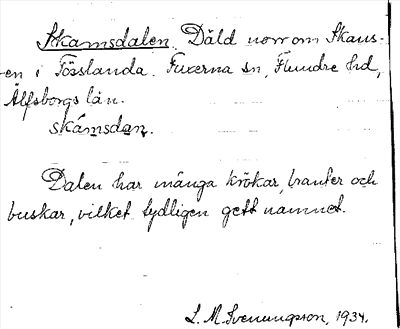 Skamsdalen. Däld norrom Skans-
en i Tösslanda. Fuxerna sn, Flundre hd,
Älfsborgs län.
skámsdan.
Dalen har många krökar, branter och
buskar, vilket tydligen gett namnet.
L. M. Svenungsson, 1934.